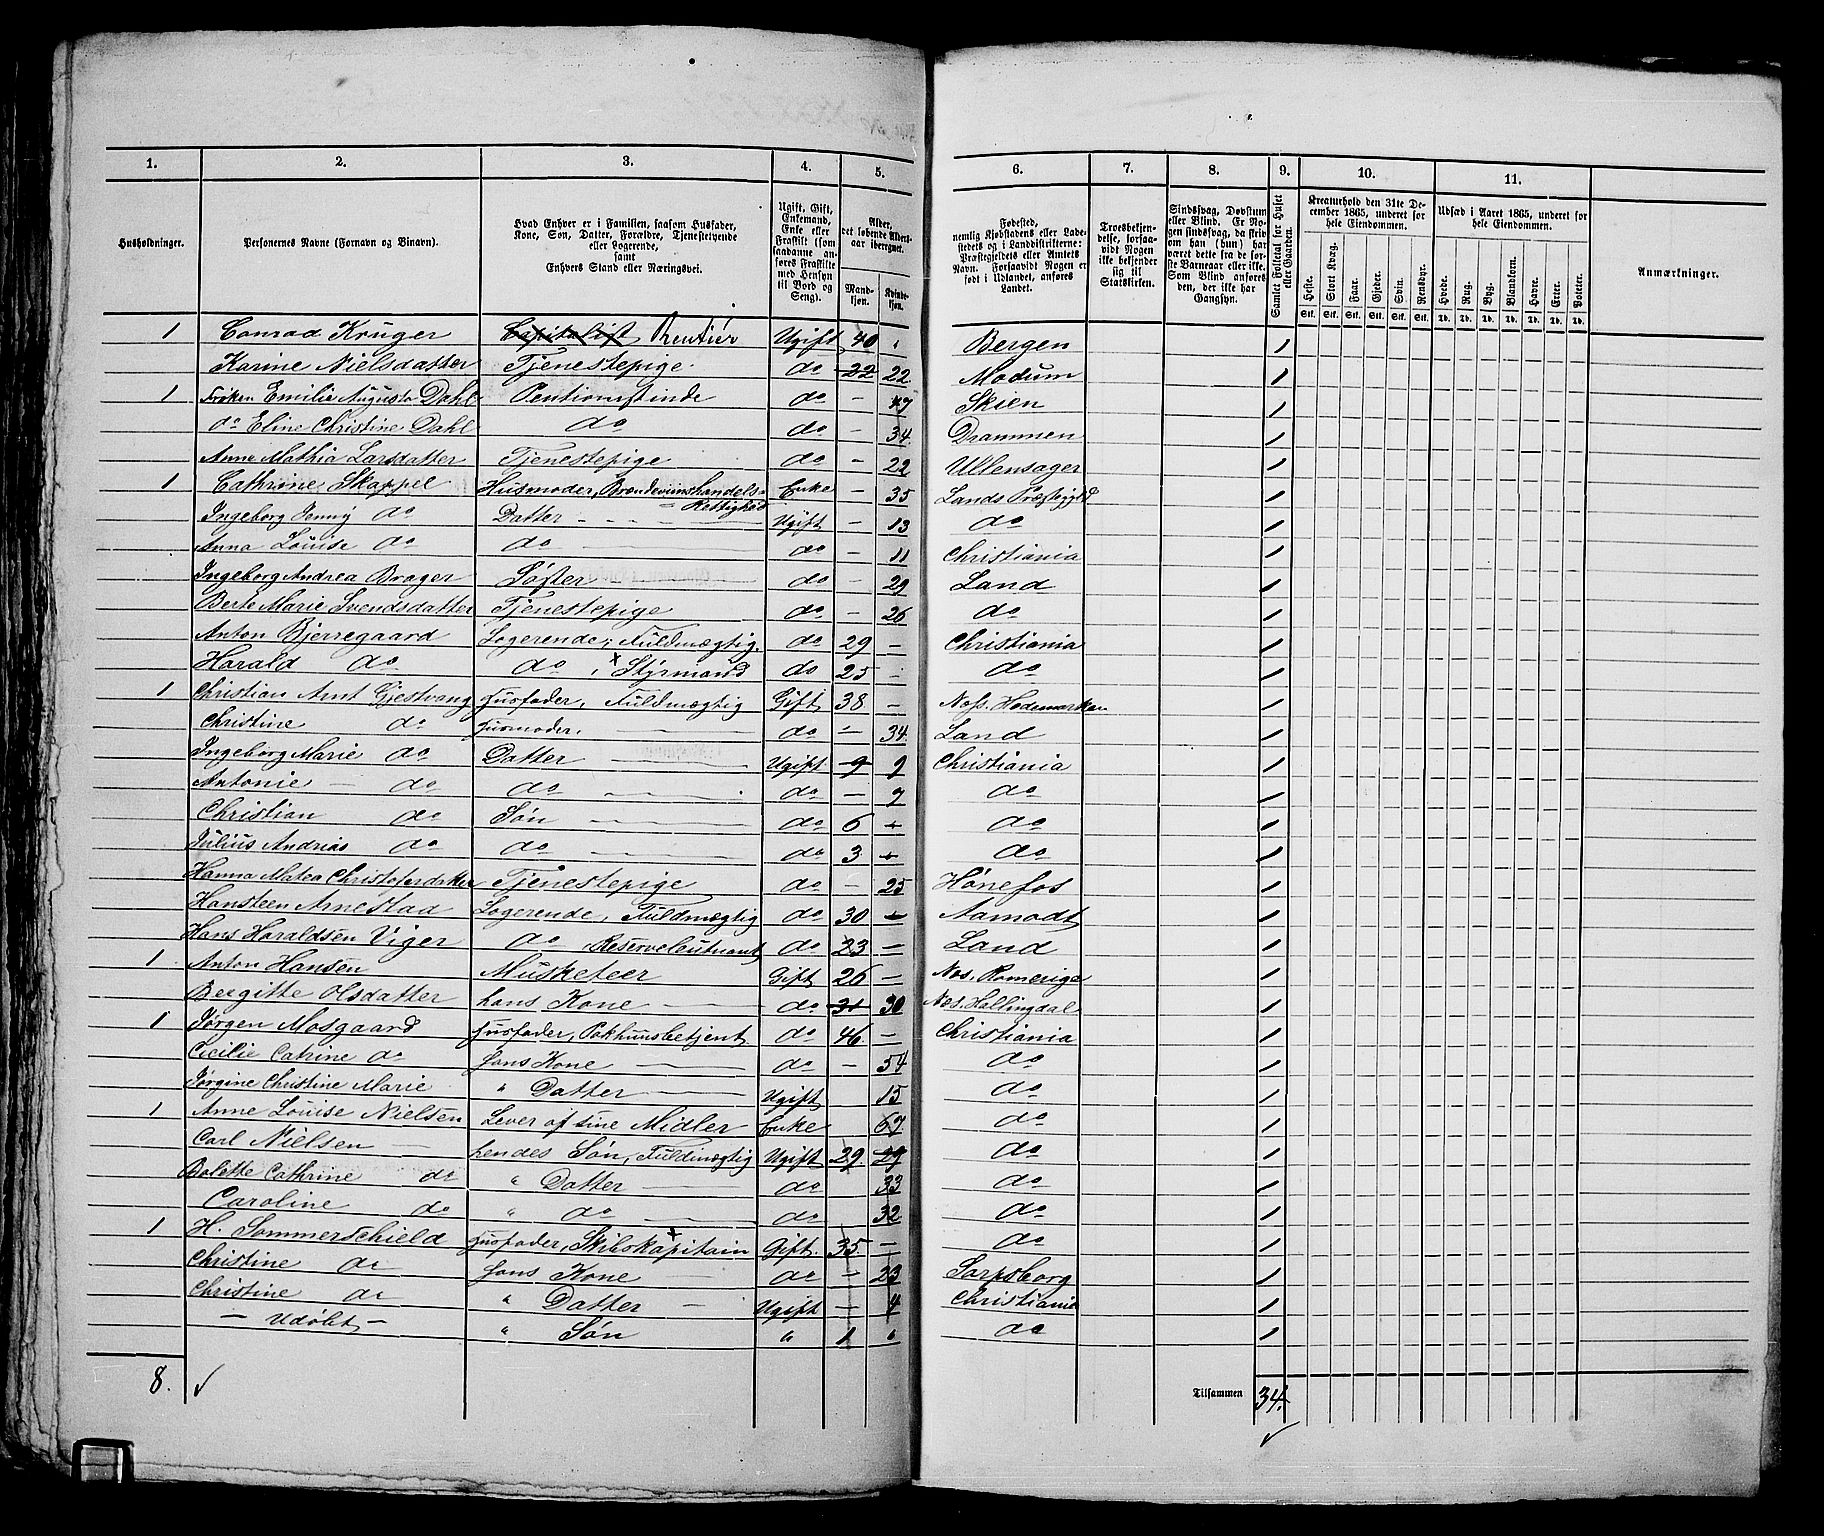 1. 2. 3. 4. 5. 6. 7. 8. 9. 10. 11.
Husholdninger.
Personernes Navne (Fornavn og Binavn).
Hvad Enhver er i Familien, saasom Husfader, Kone, Søn, Datter, Forældre, Tjenestetyende eller Logerende, samt Enhvers Stand eller Næringsvei.
Ugift, Gift, Enkemand, Enke eller Fraskilt (som saadanne anføres Fraskilte med Hensyn til Bord og Seng).
Alder, det løbende Aldersaar iberegnet.
Mandkjøn. Kvindekjøn.
Fødested, nemlig Kjøbstadens eller Ladestedets og i Landdistrikterne: Præstegjeldets eller Amtets Navn. Forsaavidt Nogen er født i Udlandet, anføres Landet.
Troesbekjendelse, forsaavidt Nogen ikke bekjender sig til Statskirken.
Sindssvag, Døvstum eller Blind. Er Nogen sindssvag, da skrives om han (hun) har været dette fra de første Barneaar eller ikke. Som Blind anføres den, der ikke har Gangsyn.
Samlet Folketal for Huset eller Gaarden.
Kreaturhold den 31te December 1865, underet for hele Eiendommen.
Heste. Stort Kvæg. Faar. Gjeder. Svin. Rensdyr.
Stk. Stk. Stk. Stk. Stk. Stk.
Udsæd i Aaret 1865, underet for hele Eiendommen.
Hvede. Rug. Byg. Blandkorn. Havre. Erter. Poteter.
Td. Td. Td. Td. Td. Td. Td.
Anmærkninger.
1 Conrad Krüger Capitalist Rentiér Ugift 40 Bergen 1
Karine Nielsdatter Tjenestepige do 22 22 Modum 1
1 Frøken Emilie Augusta Dahl Pentionistinde do - 47 Skien 1
do Eline Christine Dahl do do - 34 Drammen 1
Anne Mathia Larsdatter Tjenestepige do - 22 Ullensager 1
1 Cathrine Skappel Husmoder, Brændeviinshandels- Enke - 35 Lands Præstegjeld 1
Rettighed
Ingeborg Jenny do Datter Ugift - 13 do 1
Anna Louise do do do - 11 Christiania 1
Ingeborg Andrea Brager Søster do - 29 Land 1
Berte Marie Svendsdatter Tjenestepige do - 26 do 1
Anton Bjerregaard Logerende, Fuldmægtig do 29 - Christiania 1
Harald do do, Styrmand do 25 - do 1
1 Christian Arnt Gjestvang Husfader, Fuldmægtig Gift 38 - Næs. Hedemarken 1
Christine do Husmoder. do - 34. Land 1
Ingeborg Marie do Datter Ugift 9 9 Christiania 1
Antonie do do do - 7 do 1
Christian do Søn do 6 - do 1
Julius Andrias do do do 3 - do 1
Hanna Matea Tjenestepige do - 25 Hønefos 1
Hansteen Arnestad Logerende, Fuldmægtig do 30 - Aamodt 1
Hans Haraldsen Viger do Reserveleutnant do 23 - Land 1
1 Anton Hansen Musketeer Gift 26 - Næs. Romerige 1
Bergitte Olsdatter hans Kone do 31 30 Næs. Hallingdal 1
1 Jørgen Mosgaard Husfader, Pakhuusbetjent do 46 - Christiania 1
Cicilie Catrine do Hans Kone do - 54 do 1
Jørgine Christine Marie " Datter Ugift 15 do 1
1 Anne Louise Nielsen Lever af sine Midler Enke 67 do 1
Carl Nielsen hendes Søn, Fuldmægtig Ugift 29 29 do 1
Bolette Cathrine do " Datter do 33 do 1
Caroline do " do do 32 do 1
1 H. Sommerschield Husfader, Skibskapitain Gift. 35 - do 1
Christine do Hans Kone do - 23 Sarpsborg 1
Christine do " Datter Ugift - 4 Christiania 1
- Udøbt - " Søn " 1 " do 1
8. Tilsammen 34.